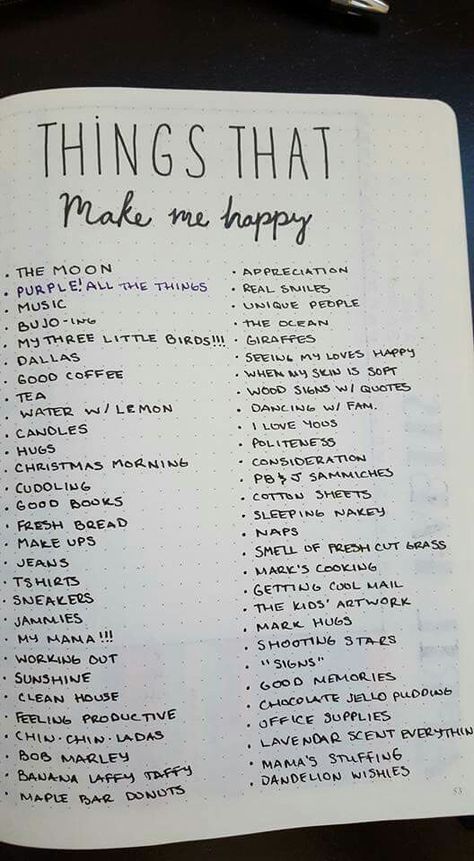 THINGS THAT
Make me happy
• THE MOON
• PURPLE! ALL THE THINGS
• MUSIC
• BUJO-ING
• MY THREE LITTLE BIRDS!!!
• DALLAS
• GOOD COFFEE
• TEA
• WATER W/ LEMON
• CANDLES
• HUGS
• CHRISTMAS MORNING
• CUDDLING
• GOOD BOOKS
• FRESH BREAD
• MAKE UPS
• JEANS
• TSHIRTS
• SNEAKERS
• JAMMIES
• MY MAMA!!!
• WORKING OUT
• SUNSHINE
• CLEAN HOUSE
• FEELING PRODUCTIVE
• CHIN-CHIN-LADAS
• BOB MARLEY
• BANANA LAFFY TAFFY
• MAPLE BAR DONUTS
• APPRECIATION
• REAL SMILES
• UNIQUE PEOPLE
• THE OCEAN
• GIRAFFES
• SEEING MY LOVES HAPPY
• WHEN MY SKIN IS SOFT
• WOOD SIGNS W/ QUOTES
• DANCING W/ FAM.
• I LOVE YOUS
• POLITENESS
• CONSIDERATION
• PB & J SAMMICHES
• COTTON SHEETS
• SLEEPING NAKEY
• NAPS
• SMELL OF FRESH CUT GRASS
• MARK'S COOKING
• GETTING COOL MAIL
• THE KIDS' ARTWORK
• MARK HUGS
• SHOOTING STARS
• "SIGNS"
• GOOD MEMORIES
• CHOCOLATE JELLO PUDDING
• OFFICE SUPPLIES
• LAVENDAR SCENT EVERYTHIN
• MAMA'S STUFFING
• DANDELION WISHIES
53